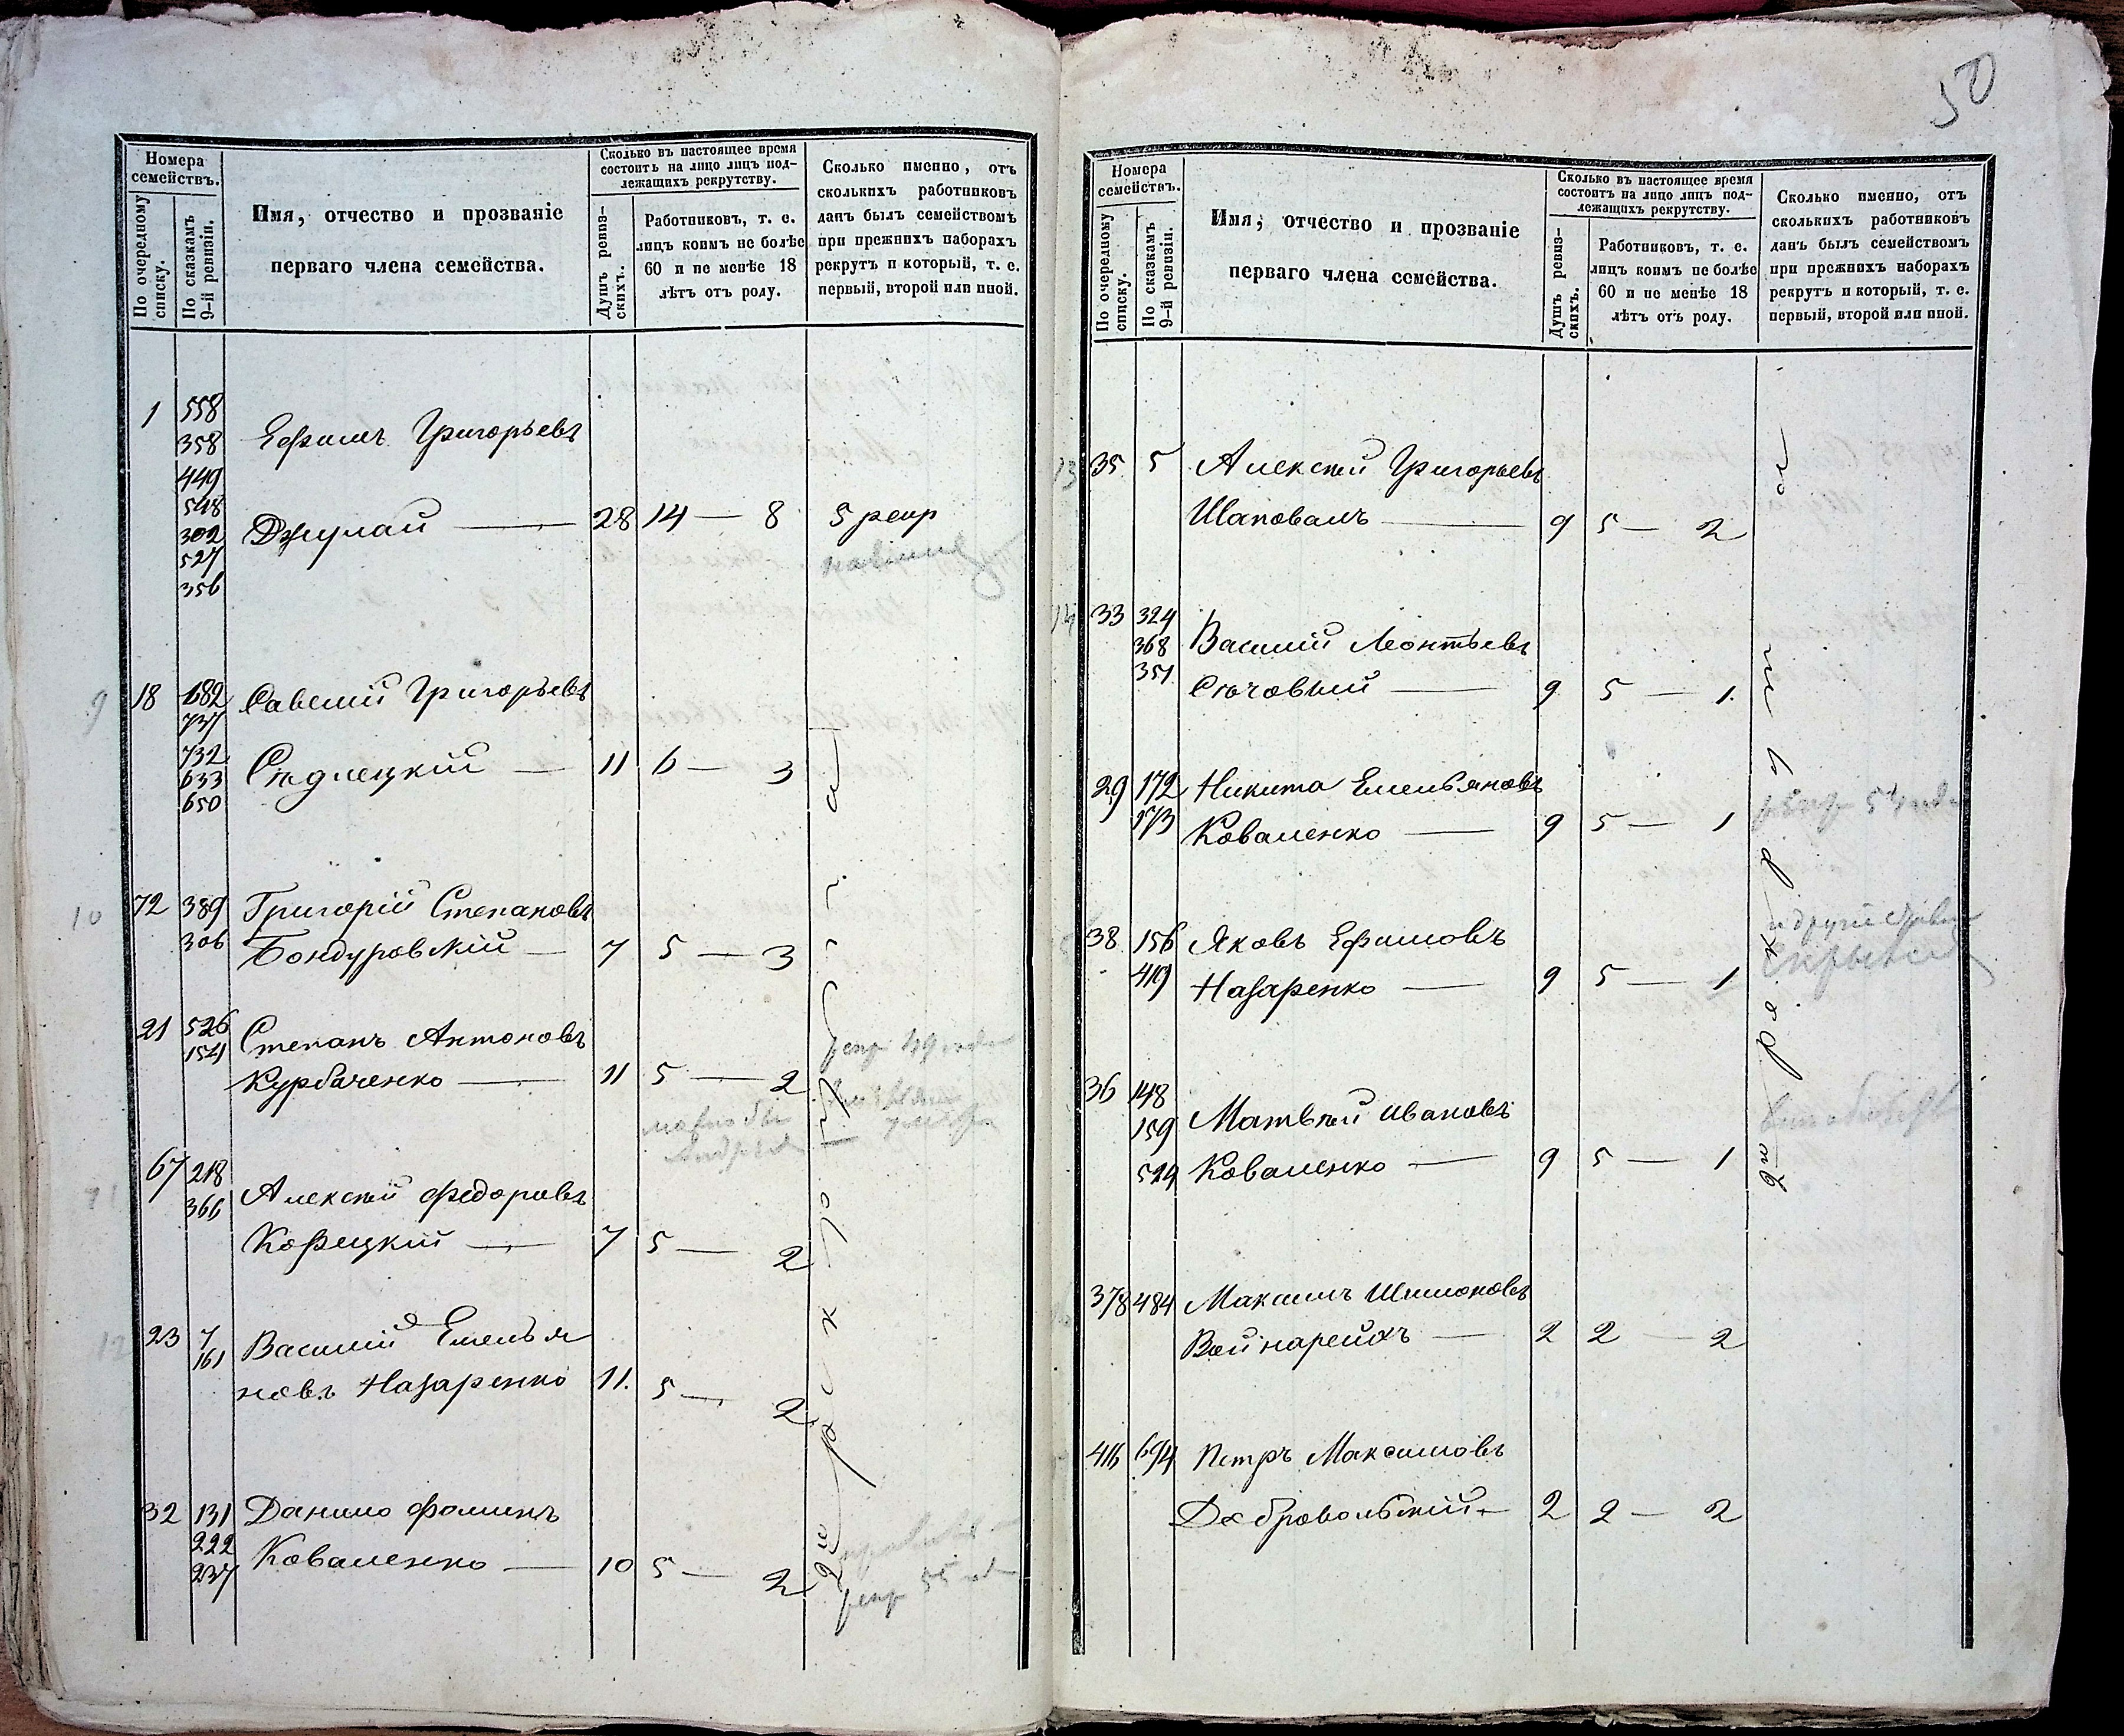 50
Номера
семействъ.
По очередному
списку.
По сказкамъ
9-й ревизіи.
Имя, отчество и прозваніе
перваго члена семейства.
Сколько въ настоящее время
состоитъ на лицо лицъ под-
лежащихъ рекрутству.
Душъ ревиз-
скихъ.
Работниковъ, т. е.
лицъ коимъ не болѣе
60 и не менѣе 18
лѣтъ отъ роду.
Сколько именно, отъ
сколькихъ работниковъ
данъ былъ семействомъ
при прежнихъ наборахъ
рекрутъ и который, т. е.
первый, второй или иной.
1 558 Ефимъ Григорьевъ
358
449
548 Джулай — 28 14 — 8 5 рекр
302
527
356
9 18 682 Савелій Григорьевъ
737
732 Сѣдлецкій — 11 6 — 3
633
650
10 72 389 Григорій Степановъ
306 Бондуровскій — 7 5 — 3
21 526 Степанъ Антоновъ
1541 Курбаченко — 11 5 — 2
рекр 49 года
67 218 Алексѣй Федоровъ
366
Корецкій — 7 5 — 2
12 23 7 Василій Емелья
161 новъ Назаренко 11. 5 — 2
32 131 Данило Фоминъ
222 Коваленко — 10 5 — 2
237
рекр 55 года
Номера
семействъ.
По очередному
списку.
По сказкамъ
9-й ревизіи.
Имя, отчество и прозваніе
перваго члена семейства.
Сколько въ настоящее время
состоитъ на лицо лицъ под-
лежащихъ рекрутству.
Душъ ревиз-
скихъ.
Работниковъ, т. е.
лицъ коимъ не болѣе
60 и не менѣе 18
лѣтъ отъ роду.
Сколько именно, отъ
сколькихъ работниковъ
данъ былъ семействомъ
при прежнихъ наборахъ
рекрутъ и который, т. е.
первый, второй или иной.
13 35 5 Алексѣй Григорьевъ
Шаповалъ — 9 5 — 2
14 33 324 Василій Леонтьевъ
368
351 — 9 5 — 1.
29 172 Никита Емельяновъ
173 Коваленко — 9 5 — 1
рекр 54 года
38 156 Яковъ Ефимовъ
419 Назаренко — 9 5 — 1
36 148 Матвѣй Ивановъ
159
529 Коваленко — 9 5 — 1
378 484 Максимъ Шимоновъ
Войнарейхъ — 2 2 — 2
416 694 Петръ Максимовъ
Добровольскій — 2 2 — 2